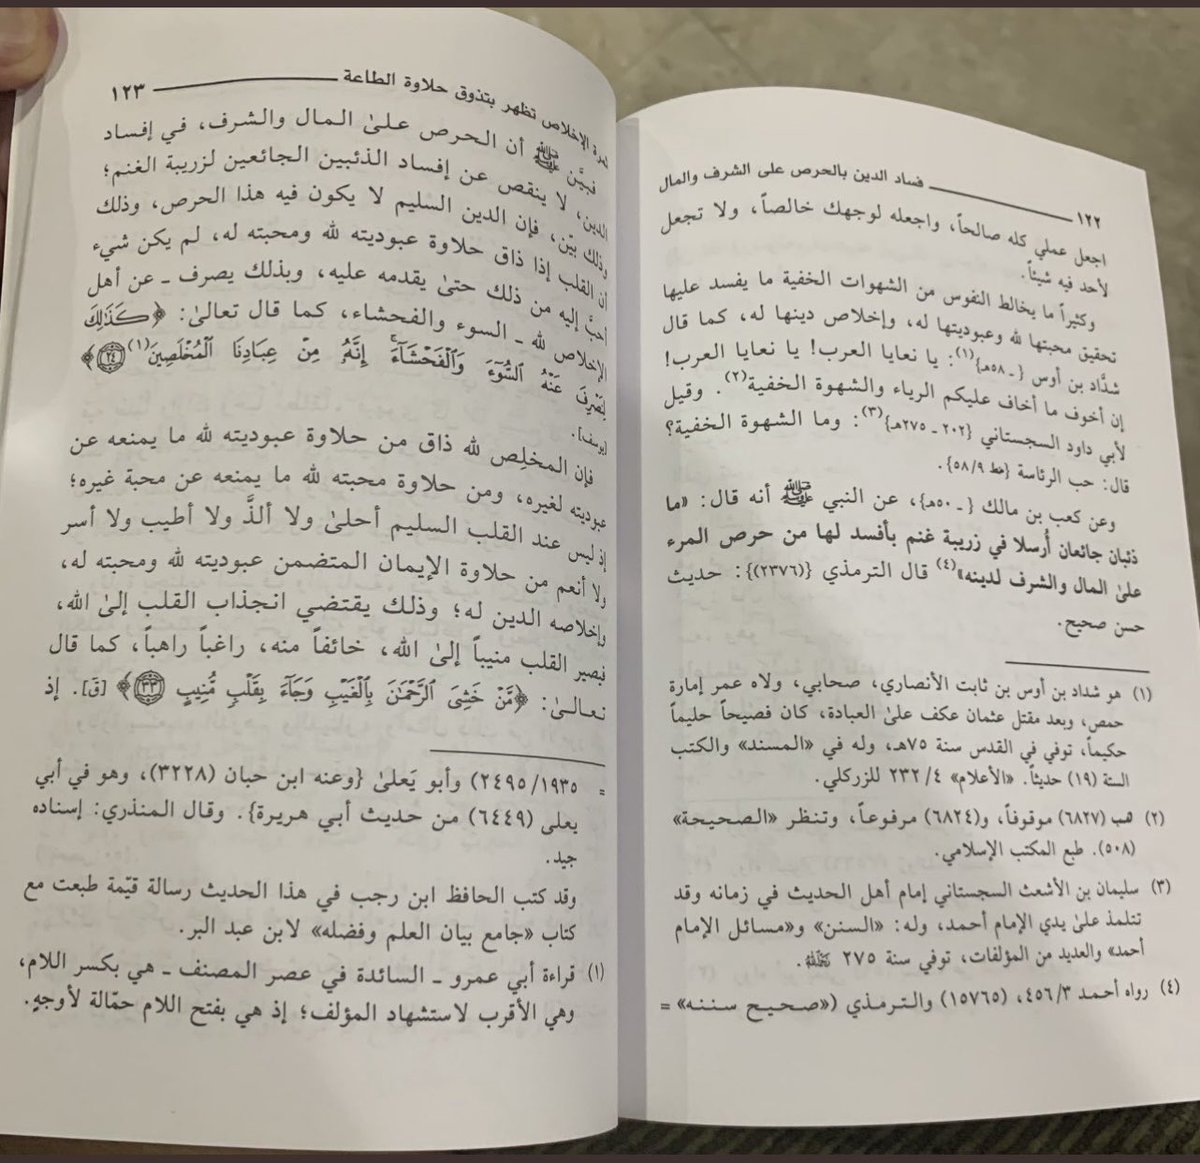 ١٢٢ فساد الدين بالحرص على الشرف والمال
اجعل عملي كله صالحاً، واجعله لوجهك خالصاً، ولا تجعل
لأحد فيه شيئاً.
وكثيراً ما يخالط النفوس من الشهوات الخفية ما يفسد عليها
تحقيق محبتها لله وعبوديتها له، وإخلاص دينها له، كما قال
شدَّاد بن أوس {ـ ٥٨هـ}(١): يا نعايا العرب! يا نعايا العرب!
إن أخوف ما أخاف عليكم الرياء والشهوة الخفية(٢). وقيل
لأبي داود السجستاني {٢٠٢ ـ ٢٧٥هـ}(٣): وما الشهوة الخفية؟
قال: حب الرئاسة {خط ٥٨/٩}.
وعن كعب بن مالك {ـ ٥٠هـ}، عن النبي ﷺ أنه قال: «ما
ذئبان جائعان أُرسلا في زريبة غنم بأفسد لها من حرص المرء
علىٰ المال والشرف لدينه»(٤) قال الترمذي {(٢٣٧٦)}: حديث
حسن صحيح.
(١) هو شداد بن أوس بن ثابت الأنصاري، صحابي، ولاه عمر إمارة
حمص، وبعد مقتل عثمان عكف علىٰ العبادة، كان فصيحاً حليماً
حكيماً، توفي في القدس سنة ٧٥هـ، وله في «المسند» والكتب
الستة (١٩) حديثاً. «الأعلام» ٢٣٢/٤ للزركلي.
(٢) هب (٦٨٢٧) موقوفاً، و(٦٨٢٤) مرفوعاً، وتنظر «الصحيحة»
(٥٠٨). طبع المكتب الإسلامي.
(٣) سليمان بن الأشعث السجستاني إمام أهل الحديث في زمانه وقد
تتلمذ علىٰ يدي الإمام أحمد، وله: «السنن» و«مسائل الإمام
أحمد» والعديد من المؤلفات، توفي سنة ٢٧٥ رحمه الله.
(٤) رواه أحمد ٤٥٦/٣، (١٥٧٦٥) والترمذي («صحيح سننه» =
ثمرة الإخلاص تظهر بتذوق حلاوة الطاعة ١٢٣
فبيَّن ﷺ أن الحرص علىٰ المال والشرف، في إفساد
الدين، لا ينقص عن إفساد الذئبين الجائعين لزريبة الغنم؛
وذلك بيّن، فإن الدين السليم لا يكون فيه هذا الحرص، وذلك
أن القلب إذا ذاق حلاوة عبوديته لله ومحبته له، لم يكن شيء
أحبَّ إليه من ذلك حتىٰ يقدمه عليه، وبذلك يصرف ـ عن أهل
الإخلاص لله ـ السوء والفحشاء، كما قال تعالىٰ: ﴿كَذَٰلِكَ
لِنَصْرِفَ عَنْهُ السُّوٓءَ وَالْفَحْشَآءَ إِنَّهُ مِنْ عِبَادِنَا الْمُخْلَصِينَ(١) ٢٤﴾
[يوسف].
فإن المخلِص لله ذاق من حلاوة عبوديته لله ما يمنعه عن
عبوديته لغيره، ومن حلاوة محبته لله ما يمنعه عن محبة غيره؛
إذ ليس عند القلب السليم أحلىٰ ولا ألذَّ ولا أطيب ولا أسر
ولا أنعم من حلاوة الإيمان المتضمن عبوديته لله ومحبته له،
وإخلاصه الدين له؛ وذلك يقتضي انجذاب القلب إلىٰ الله،
فيصير القلب منيباً إلىٰ الله، خائفاً منه، راغباً راهباً، كما قال
تعالىٰ: ﴿مَّنْ خَشِيَ الرَّحْمَٰنَ بِالْغَيْبِ وَجَآءَ بِقَلْبٍ مُّنِيبٍ ٣٣﴾ [قَ]. إذ
= ٢٤٩٥/١٩٣٥) وأبو يَعلىٰ {وعنه ابن حبان (٣٢٢٨)، وهو في أبي
يعلى (٦٤٤٩) من حديث أبي هريرة}. وقال المنذري: إسناده
جيد.
وقد كتب الحافظ ابن رجب في هذا الحديث رسالة قيّمة طبعت مع
كتاب «جامع بيان العلم وفضله» لابن عبد البر.
(١) قراءة أبي عمرو ـ السائدة في عصر المصنف ـ هي بكسر اللام،
وهي الأقرب لاستشهاد المؤلف؛ إذ هي بفتح اللام حمّالة لأوجهٍ.